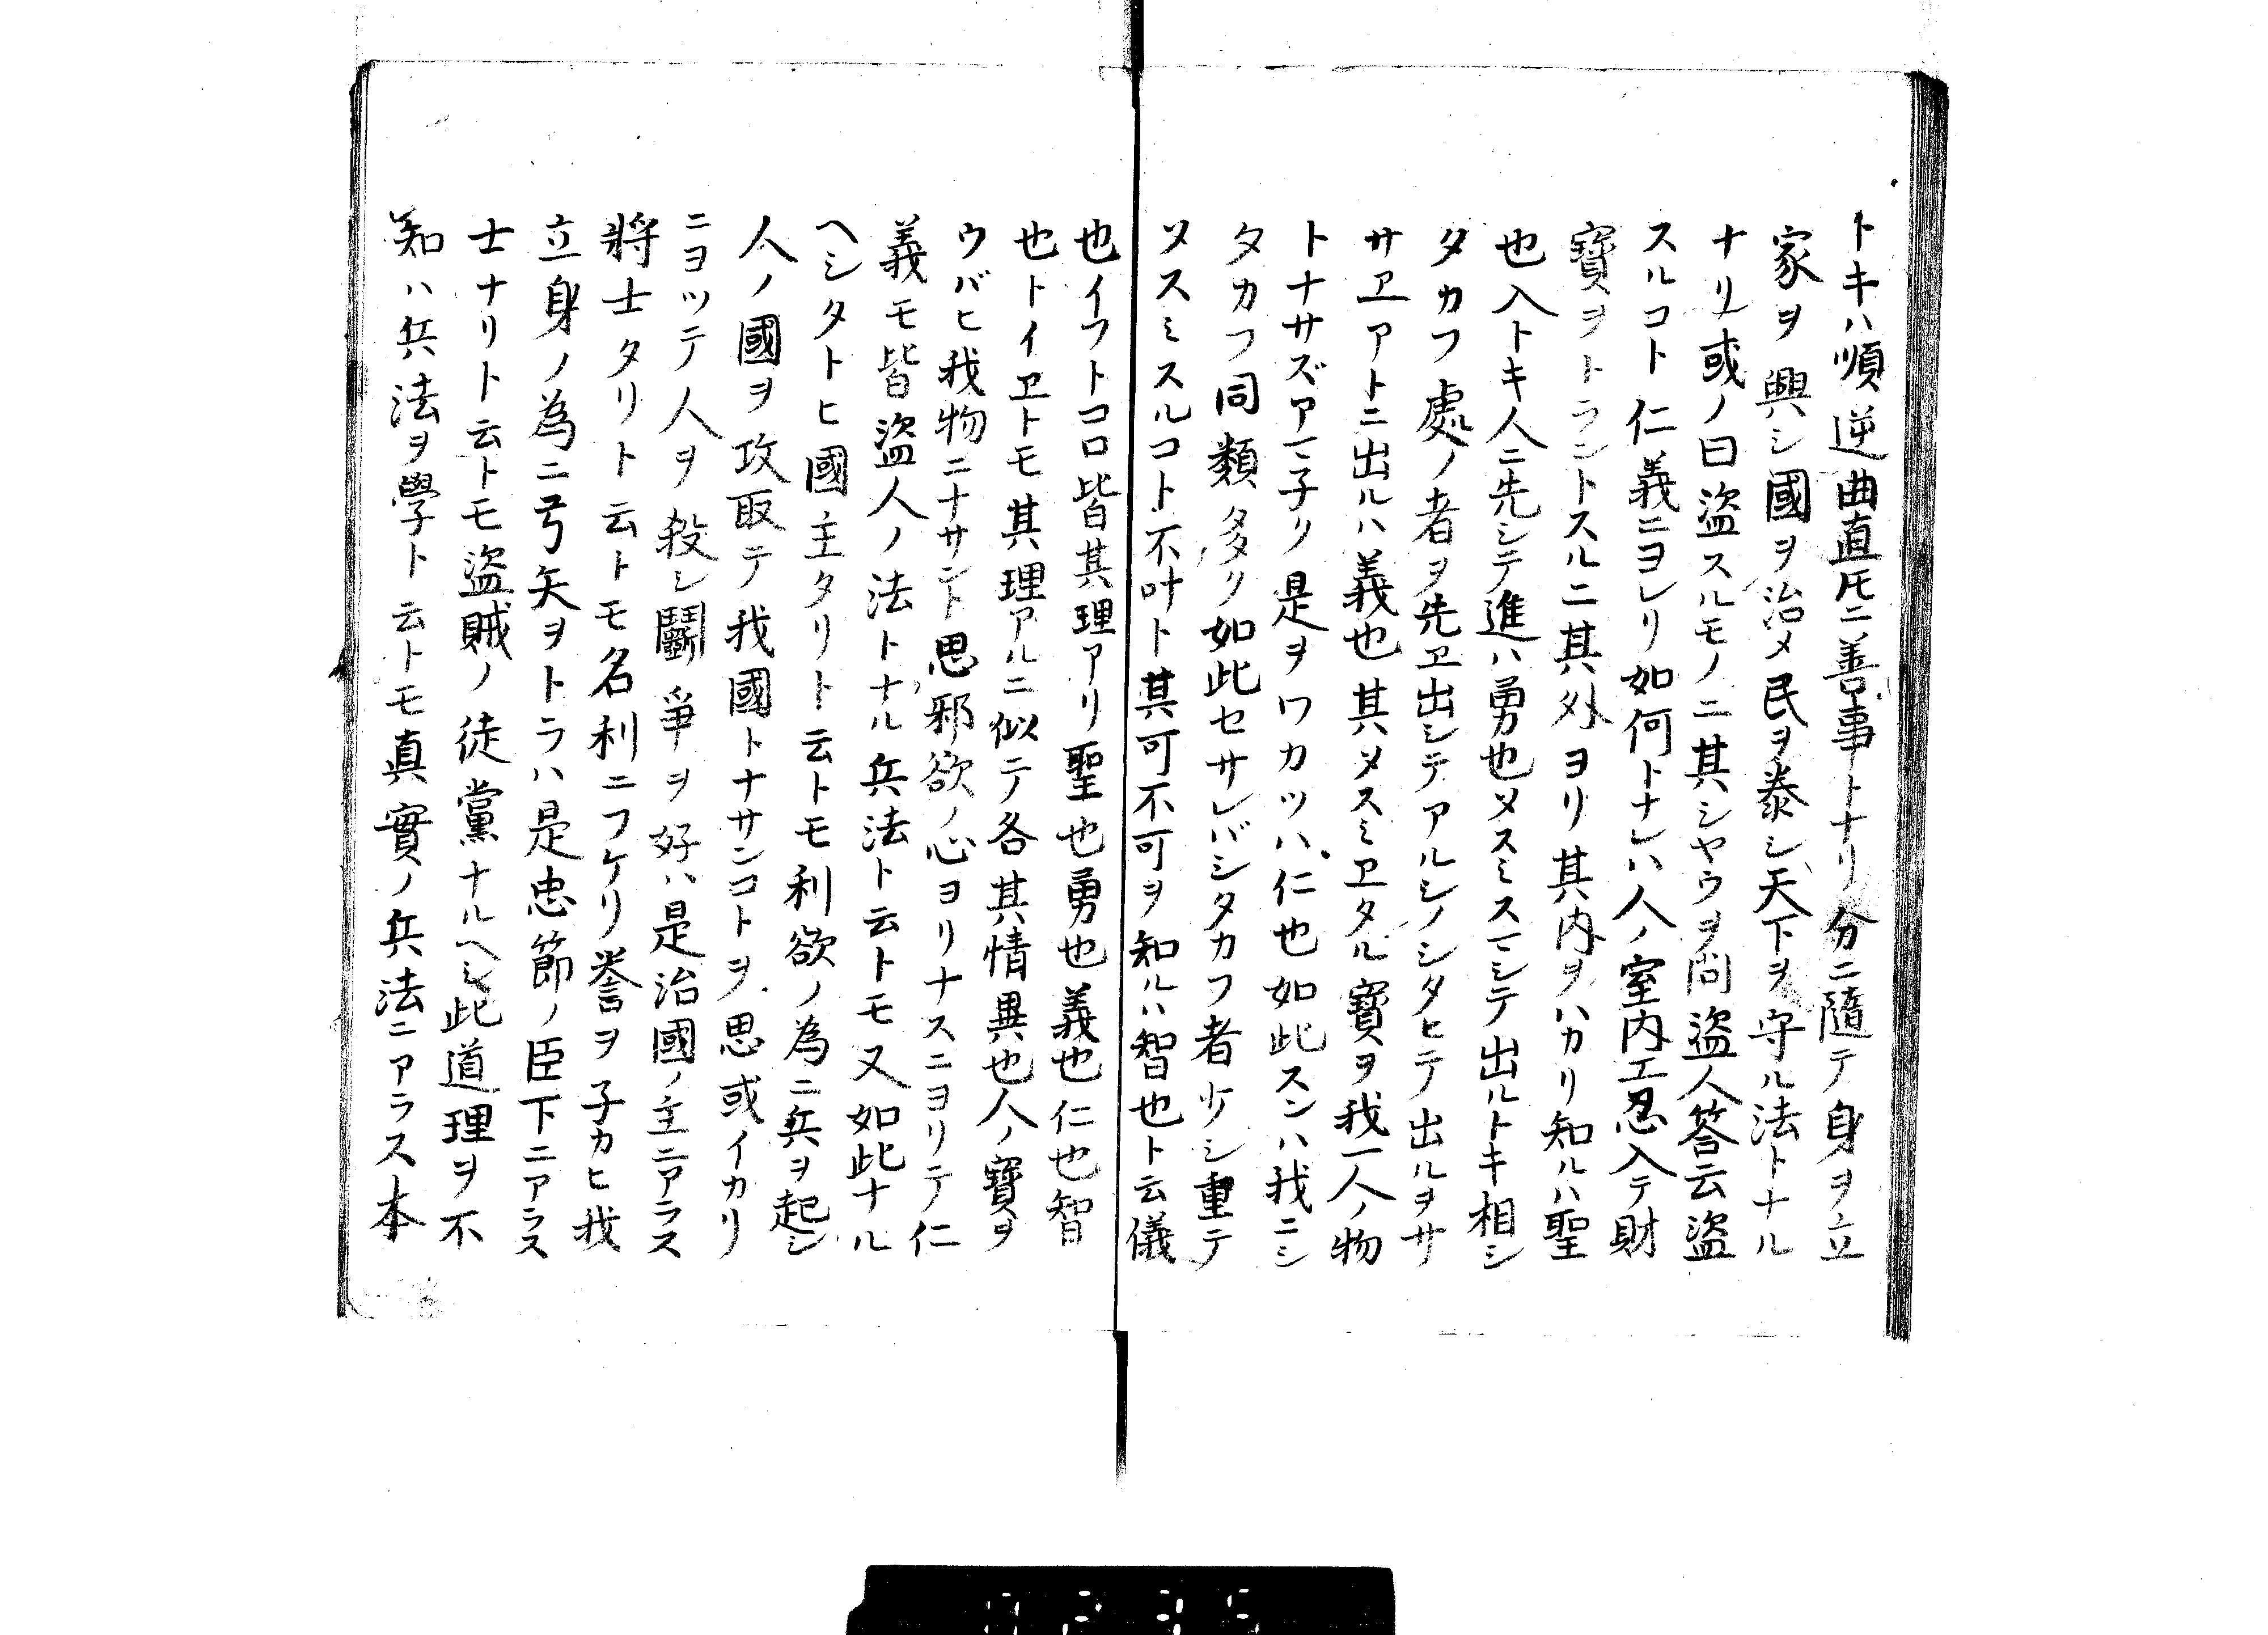 トキハ順逆曲直𪜈ニ善事トナリ分ニ隨テ身ヲ立
家ヲ興シ國ヲ治メ民ヲ泰シ天下ヲ守ル法トナル
ナリ或ノ曰盗スルモノニ其シヤウヲ问盗人答云盗
スルコト仁義ニヨレリ如何トナレハ人ノ室内エ忍入テ財
寶ヲトラントスルニ其外ヨリ其内ヲハカリ知ルハ聖
也入トキ人ニ先シテ進ハ勇也ヌスミスマシテ出ルトキ相シ
タカフ處ノ者ヲ先ヱ出シテアルシノシタヒテ出ルヲサ
サヱアトニ出ルハ義也其ヌスミヱタル寶ヲ我一人ノ物
トナサズアマ子ク是ヲワカツハ仁也如此スンハ我ニシ
タカフ同類多ク如此セサレバシタカフ者少シ重テ
ヌスミスルコト不叶ト其可不可ヲ知ルハ智也ト云儀
也イフトコロ皆其理アリ聖也勇也義也仁也智
也トイヱトモ其理アルニ似テ各其情異也人ノ寶ヲ
ウバヒ我物ニナサント思邪欲ノ心ヨリナスニヨリテ仁
義モ皆盗人ノ法トナル兵法ト云トモ又如此ナル
ヘシタトヒ國主タリト云トモ利欲ノ為ニ兵ヲ起シ
人ノ國ヲ攻取テ我國トナサンコトヲ思或イカリ
ニヨツテ人ヲ殺シ鬭爭ヲ好ハ是治國ノ主ニアラス
將士タリト云トモ名利ニフケリ誉ヲ子カヒ我
立身ノ為ニ弓矢ヲトラハ是忠節ノ臣下ニアラス
士ナリト云トモ盗賊ノ徒黨ナルヘシ此道理ヲ不
知ハ兵法ヲ學ト云トモ真實ノ兵法ニアラス本